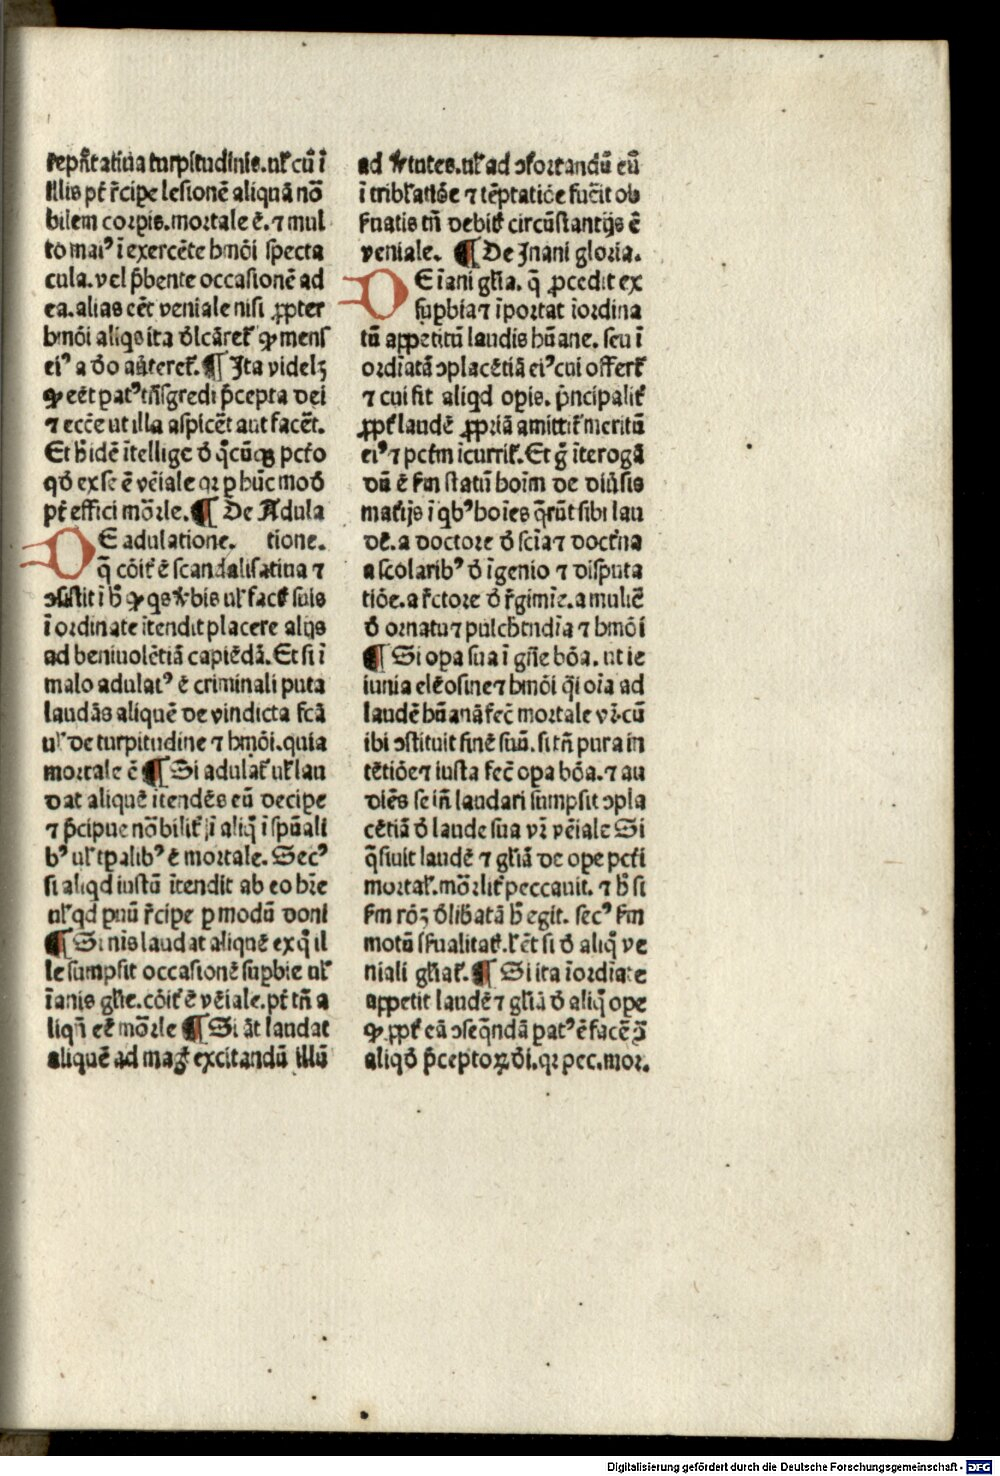 rep̄ſtatiua turpitudinis. ul̓ cū ī
illis pt̄ r̄cipe leſionē aliquā no
bilem corpis. mortale ē. ⁊ mul
to maiꝰ ī exercēte hmōi ſpecta
cula. vel p̄bente occaſionē ad
ea. alias eēt veniale niſi ꝓpter
hmōi aliqͥs ita dl̓cāret̓ ꝙ menſ
eiꝰ a do auferet̓. ¶ Ita videlꝫ
ꝙ eēt patꝰ tn̄ſgredi p̄cepta dei
⁊ ecc̄e ut illa aſpicēt aut facēt.
Et h̓ idē ītellige ď qͥcūqꝫ pctō
qď ex ſe ē vēiale qꝛ ꝑ hūc mod
pt̄ effici mōꝛle. ¶ De Adula
DE adulatione. tione.
q̄ cōit̓ ē ſcandaliſatiua ⁊
ꝯſiſtit ī h̓ ꝙ qͥs v̓bis ul̓ fact̓ ſuis
ī ordinate ītendit placere alijs
ad beniuolētiā capiēdā. Et ſi ī
malo adulatꝰ ē criminali puta
laudās aliquē de vindicta fcā
ul̓ de turpitudine ⁊ hmōi. quia
moꝛtale ē ¶ Si adulat̓ ul̓ lau
dat aliquē ītendēs eū decipe
⁊ p̄cipue nobilit̓ ſi aliq̄ ī ſpūali
bꝰ ul̓ tꝑalibꝰ ē moꝛtale. Secꝰ
ſi aliqd iuſtū ītendit ab eo hr̄e
ul̓ qd ꝑuū r̄cipe ꝑ modū doni
¶ Si nīs laudat aliquē ex q̄ il
le ſumpſit occaſionē ſupbie ul̓
īanis glīe. cōit̓ ē vēiale. pt̄ tn̄ a
liqn̄ eē moꝛ̄le ¶ Si āt laudat
aliquē ad mag̓ excitandū illū
ad v̓tutes. ul̓ ad ꝯfoꝛtandū eū
ī tribl̓atiōe ⁊ tēptatiōe fuēit ob
ſ̓uatis tn̄ debit̓ circūſtantijs ē
veniale. ¶ De Inani gloria.
DE īani glīa. q̄ ꝓcedit ex
ſupbia ⁊ īpoꝛtat īoꝛdina
tū appetitū laudis hūane. ſeu ī
oꝛdīatā ꝯplacētiā eiꝰ cui offert̓
⁊ cui fit aliqd opis. p̄ncipalit̓
ꝓpt̓ laudē ꝓpriā amittit̓ meritū
eiꝰ ⁊ pctm̄ īcurrit̓. Et g̊ īterogā
dū ē ẜm ſtatū hoīm de diūſis
mat̓ijs ī qͥbꝰ hoīes q̄rūt ſibi lau
dē. a doctoꝛe ď ſcīa ⁊ doct̓na
a ſcolaribꝰ ď īgenio ⁊ diſputa
tiōe. a r̄ctoꝛe ď r̄gimīe. a muliē
ď oꝛnatu ⁊ pulchꝛīdīa ⁊ hmōi
¶ Si opa ſua ī gn̄e bōa. ut ie
iunia elēoſine ⁊ hmōi q̄i oīa ad
laudē hūanā fec̄ moꝛtale vꝛ. cū
ibi ꝯſtituit finē ſuū. ſi tn̄ pura in
tētiōe ⁊ iuſta fec̄ opa bōa. ⁊ au
diēs ſe īn laudari ſumpſit ꝯpla
cētiā ď laude ſua vꝛ vēiale Si
q̄ſiuit laudē ⁊ glīā de ope pcti
moꝛtal̓. moꝛ̄lit̓ peccauit. ⁊ h̓ ſi
ẜm rōꝫ ďlib̓atā h̓ egit. ſecꝰ ẜm
motū ſēſualitat̓. ſ̓ ēt ſi ď aliq̄ ve
niali gl̓iat̓. ¶ Si ita īoꝛdīate
appetit laudē ⁊ glīā ď aliq̄ ope
ꝙ ꝓpt̓ eā ꝯſeq̄ndā patꝰ ē facē ꝯ̄
aliqď p̄ceptoꝝ dī. qꝛ pec. moꝛ.
Digitalisierung gefördert durch die Deutsche Forschungsgemeinschaft - DFG